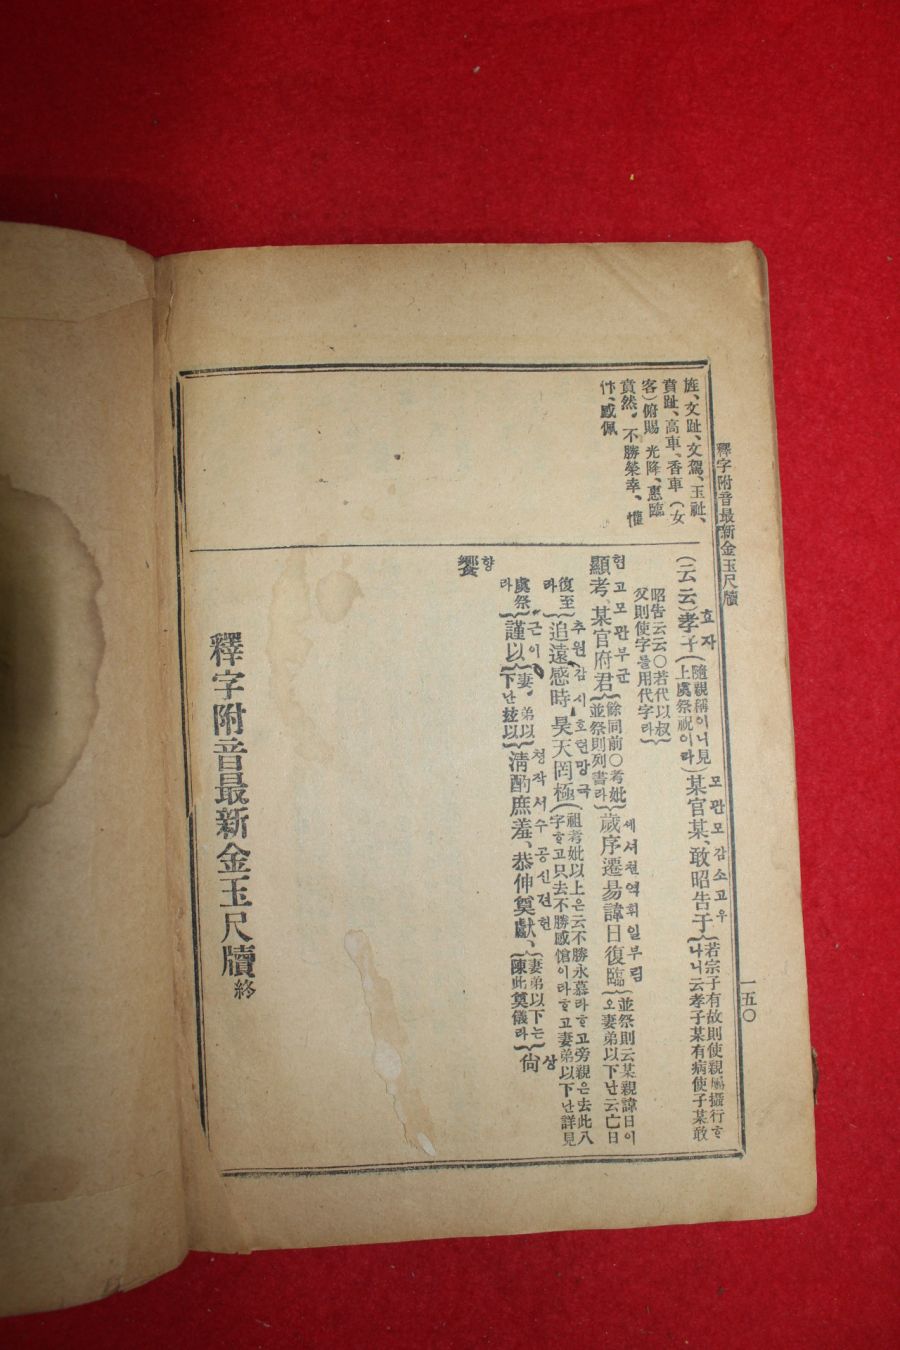 釋字附音最新金玉尺牘
一五〇
旌、文趾、文駕、玉趾、
賁趾、高車、香車(女
客)俯賜 光降、惠臨
賁然、不勝榮幸、懽
忭、感佩
효자 모관모 감소고우
(云云)孝子(隨親稱이니見上虞祭祝이라)某官某、敢昭告于{若宗子有故則使親屬攝行하나니云孝子某有病使子某敢
昭告云云○若代以叔父則使字를用代字라}
현고모관부군 세서천역휘일부림
顯考、某官府君{餘同前○考妣並祭則列書라}歲序遷易諱日復臨{並祭則云某親諱日이오妻弟以下난云亡日
復至라}
추원감시호천망극
追遠感時昊天罔極(祖考妣以上은云不勝永慕라하고旁親은去此八字하고只去不勝感愴이라하고妻弟以下난詳見
虞祭라
근이 청작서수공신전헌 상
謹以{妻、弟以下난玆以}淸酌庶羞、恭伸奠獻、{妻弟以下는陳此奠儀라}尙
향
饗
釋字附音最新金玉尺牘 終